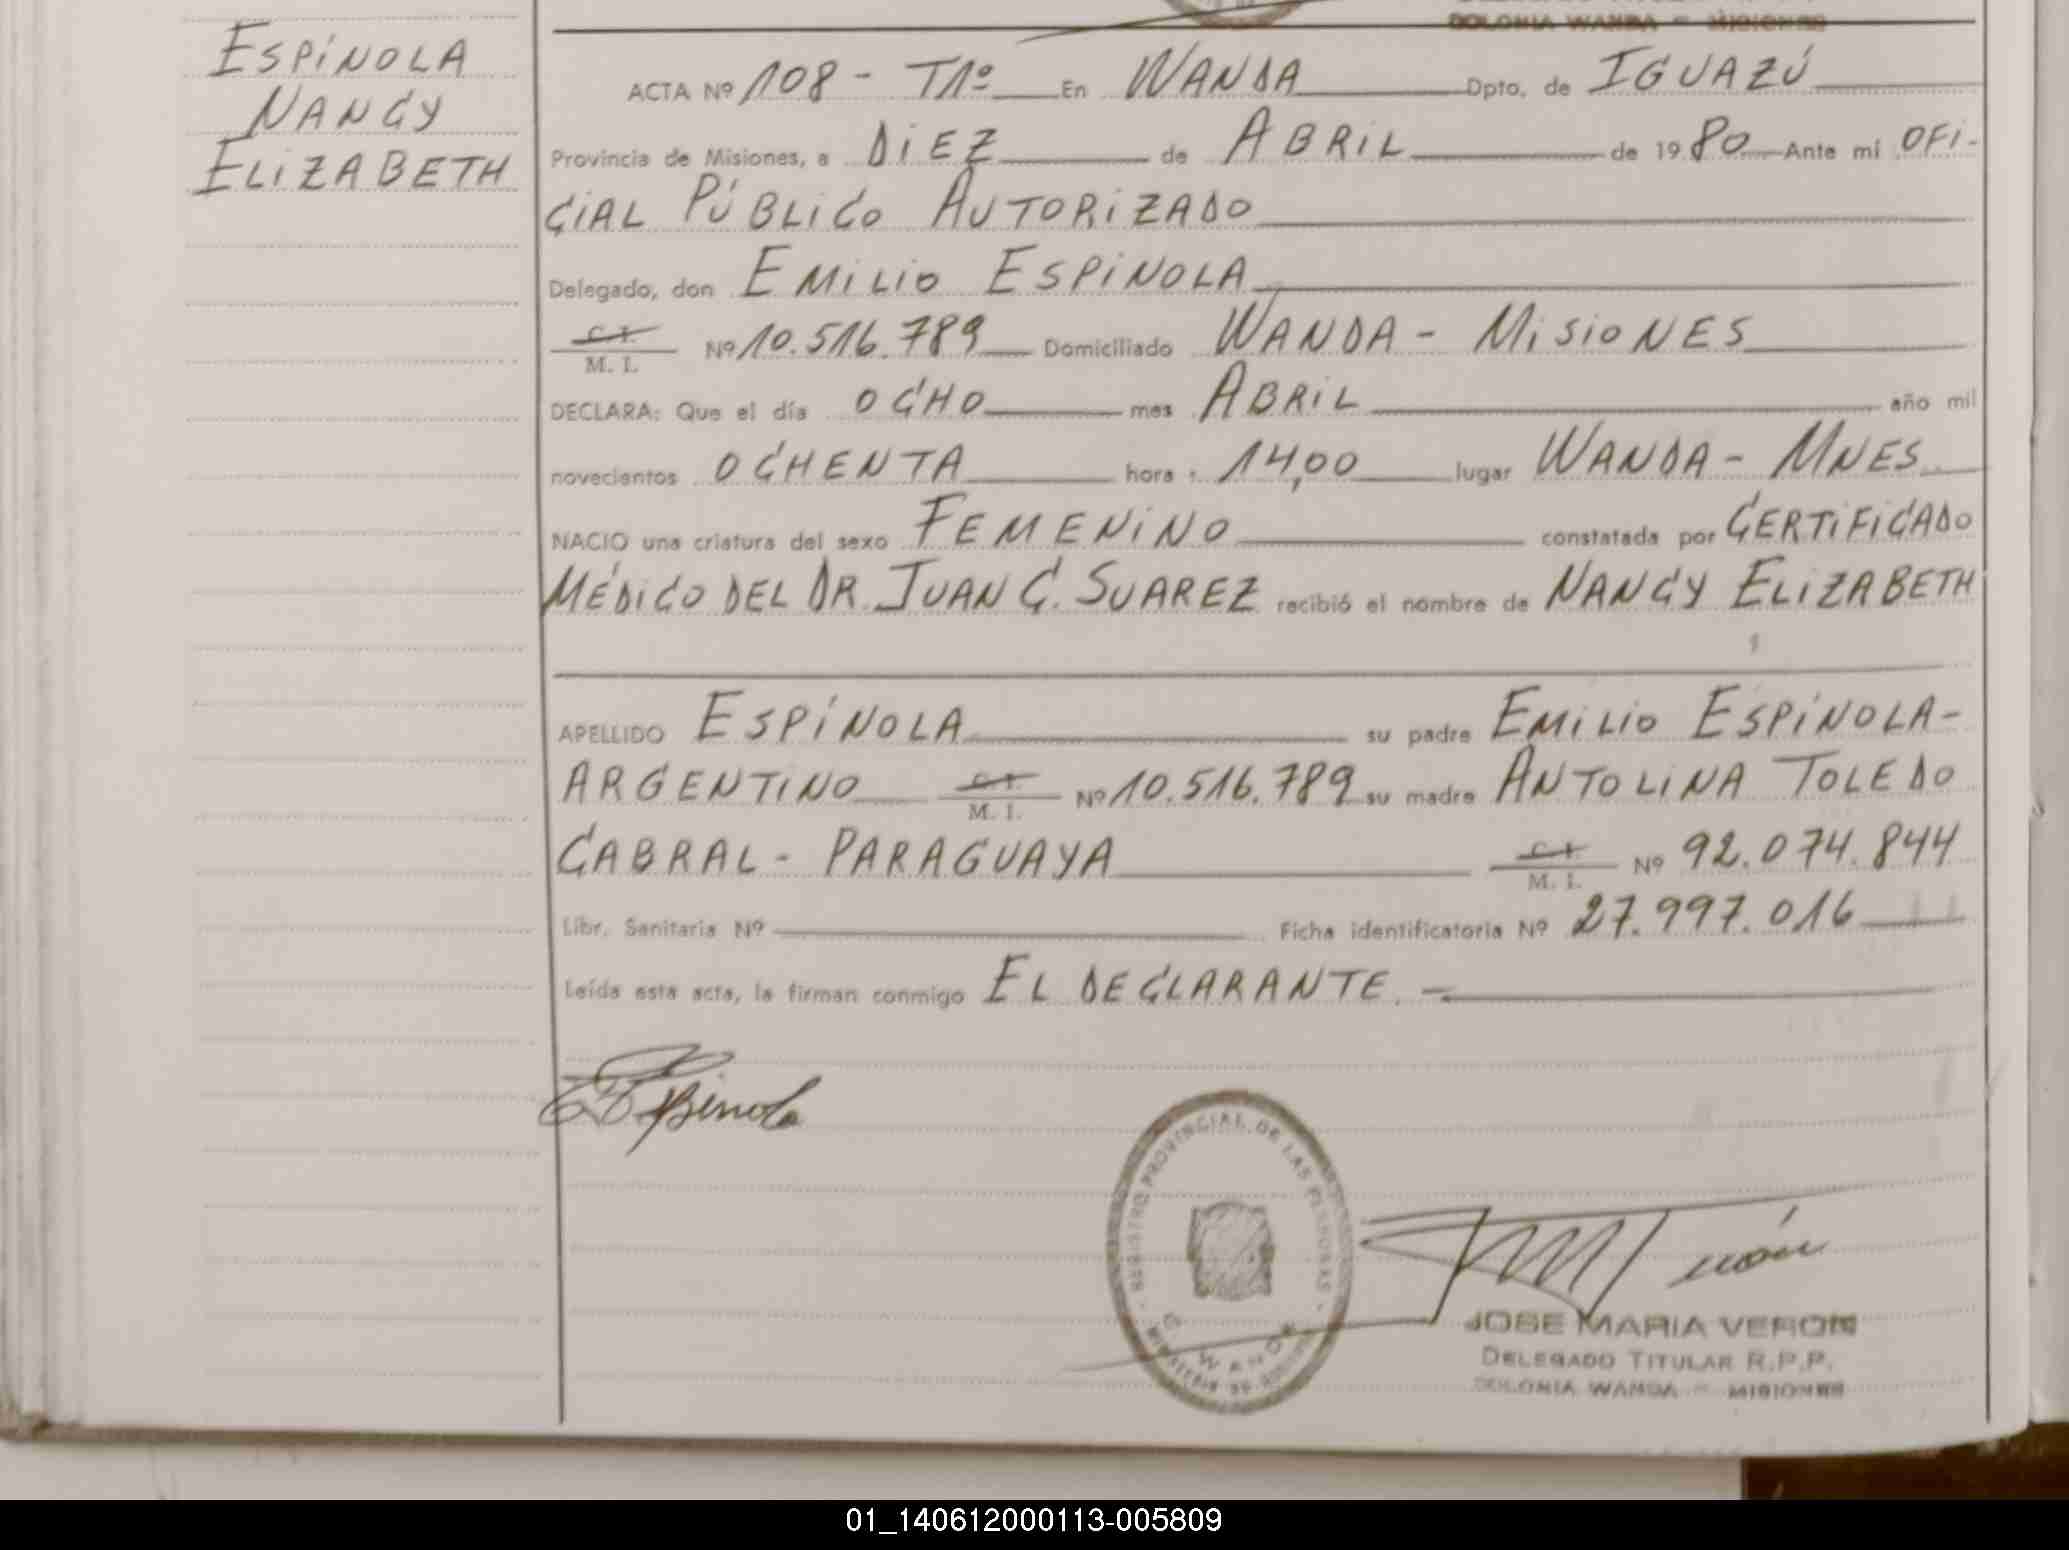 COLONIA WANDA - MISIONES
ESPÍNOLA
NANCY
ELIZABETH
ACTA Nº 108 - T1º En WANDA Dpto. de IGUAZÚ
Provincia de Misiones, a DIEZ de ABRIL de 1980 Ante mí OFI-
CIAL PÚBLICO AUTORIZADO
Delegado, don EMILIO ESPÍNOLA
C. I.
M. I. Nº 10.516.789 Domiciliado WANDA - MISIONES
DECLARA: Que el día OCHO mes ABRIL año mil
novecientos OCHENTA hora : 14,00 lugar WANDA - MNES
NACIO una criatura del sexo FEMENINO constatada por CERTIFICADO
MÉDICO DEL DR. JUAN C. SUAREZ recibió el nombre de NANCY ELIZABETH
APELLIDO ESPÍNOLA su padre EMILIO ESPÍNOLA-
ARGENTINO C. I. M. I. Nº 10.516.789 su madre ANTOLINA TOLEDO
CABRAL - PARAGUAYA C. I. M. I. Nº 92.074.844
Libr. Sanitaria Nº Ficha identificatoria Nº 27.997.016
Leída esta acta, la firman conmigo EL DECLARANTE. -
Espinola
REGISTRO PROVINCIAL DE LAS PERSONAS
C. WANDA
MINISTERIO DE GOBIERNO
JOSE MARIA VERON
DELEGADO TITULAR R.P.P.
COLONIA WANDA - MISIONES
01_140612000113-005809